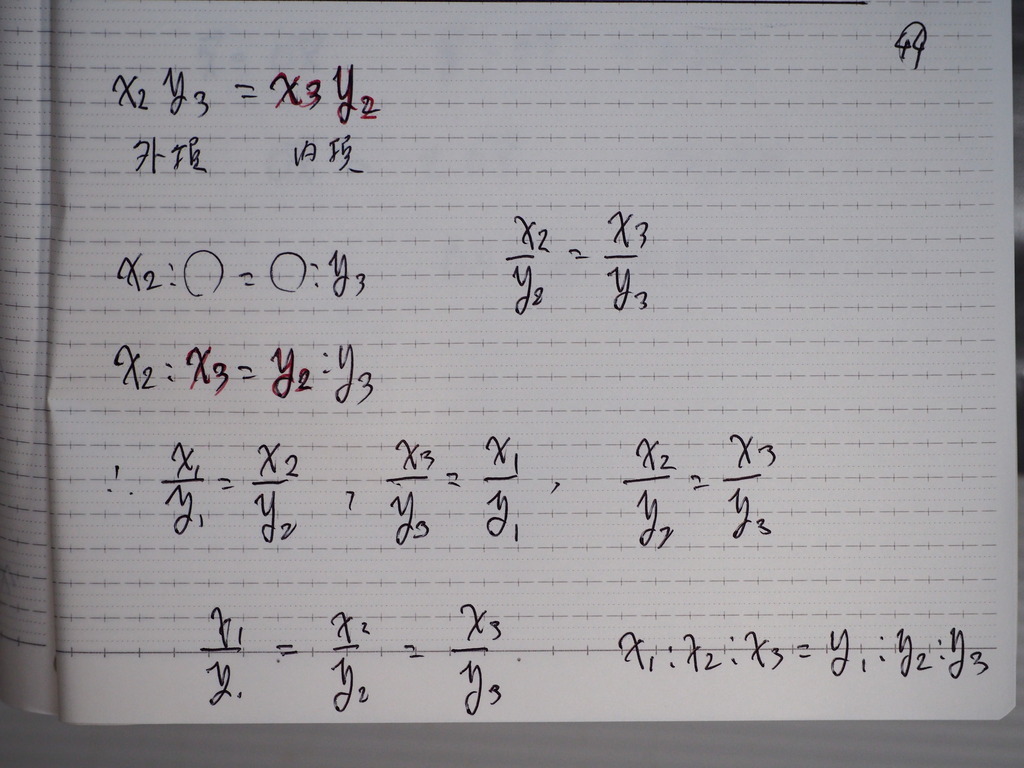 44
x₂ y₃ = x₃ y₂
外項 内項
x₂ : ○ = ○ : y₃
x₂/y₂ = x₃/y₃
x₂ : x₃ = y₂ : y₃
∴ x₁/y₁ = x₂/y₂ , x₃/y₃ = x₁/y₁ , x₂/y₂ = x₃/y₃
x₁/y₁ = x₂/y₂ = x₃/y₃
x₁ : x₂ : x₃ = y₁ : y₂ : y₃